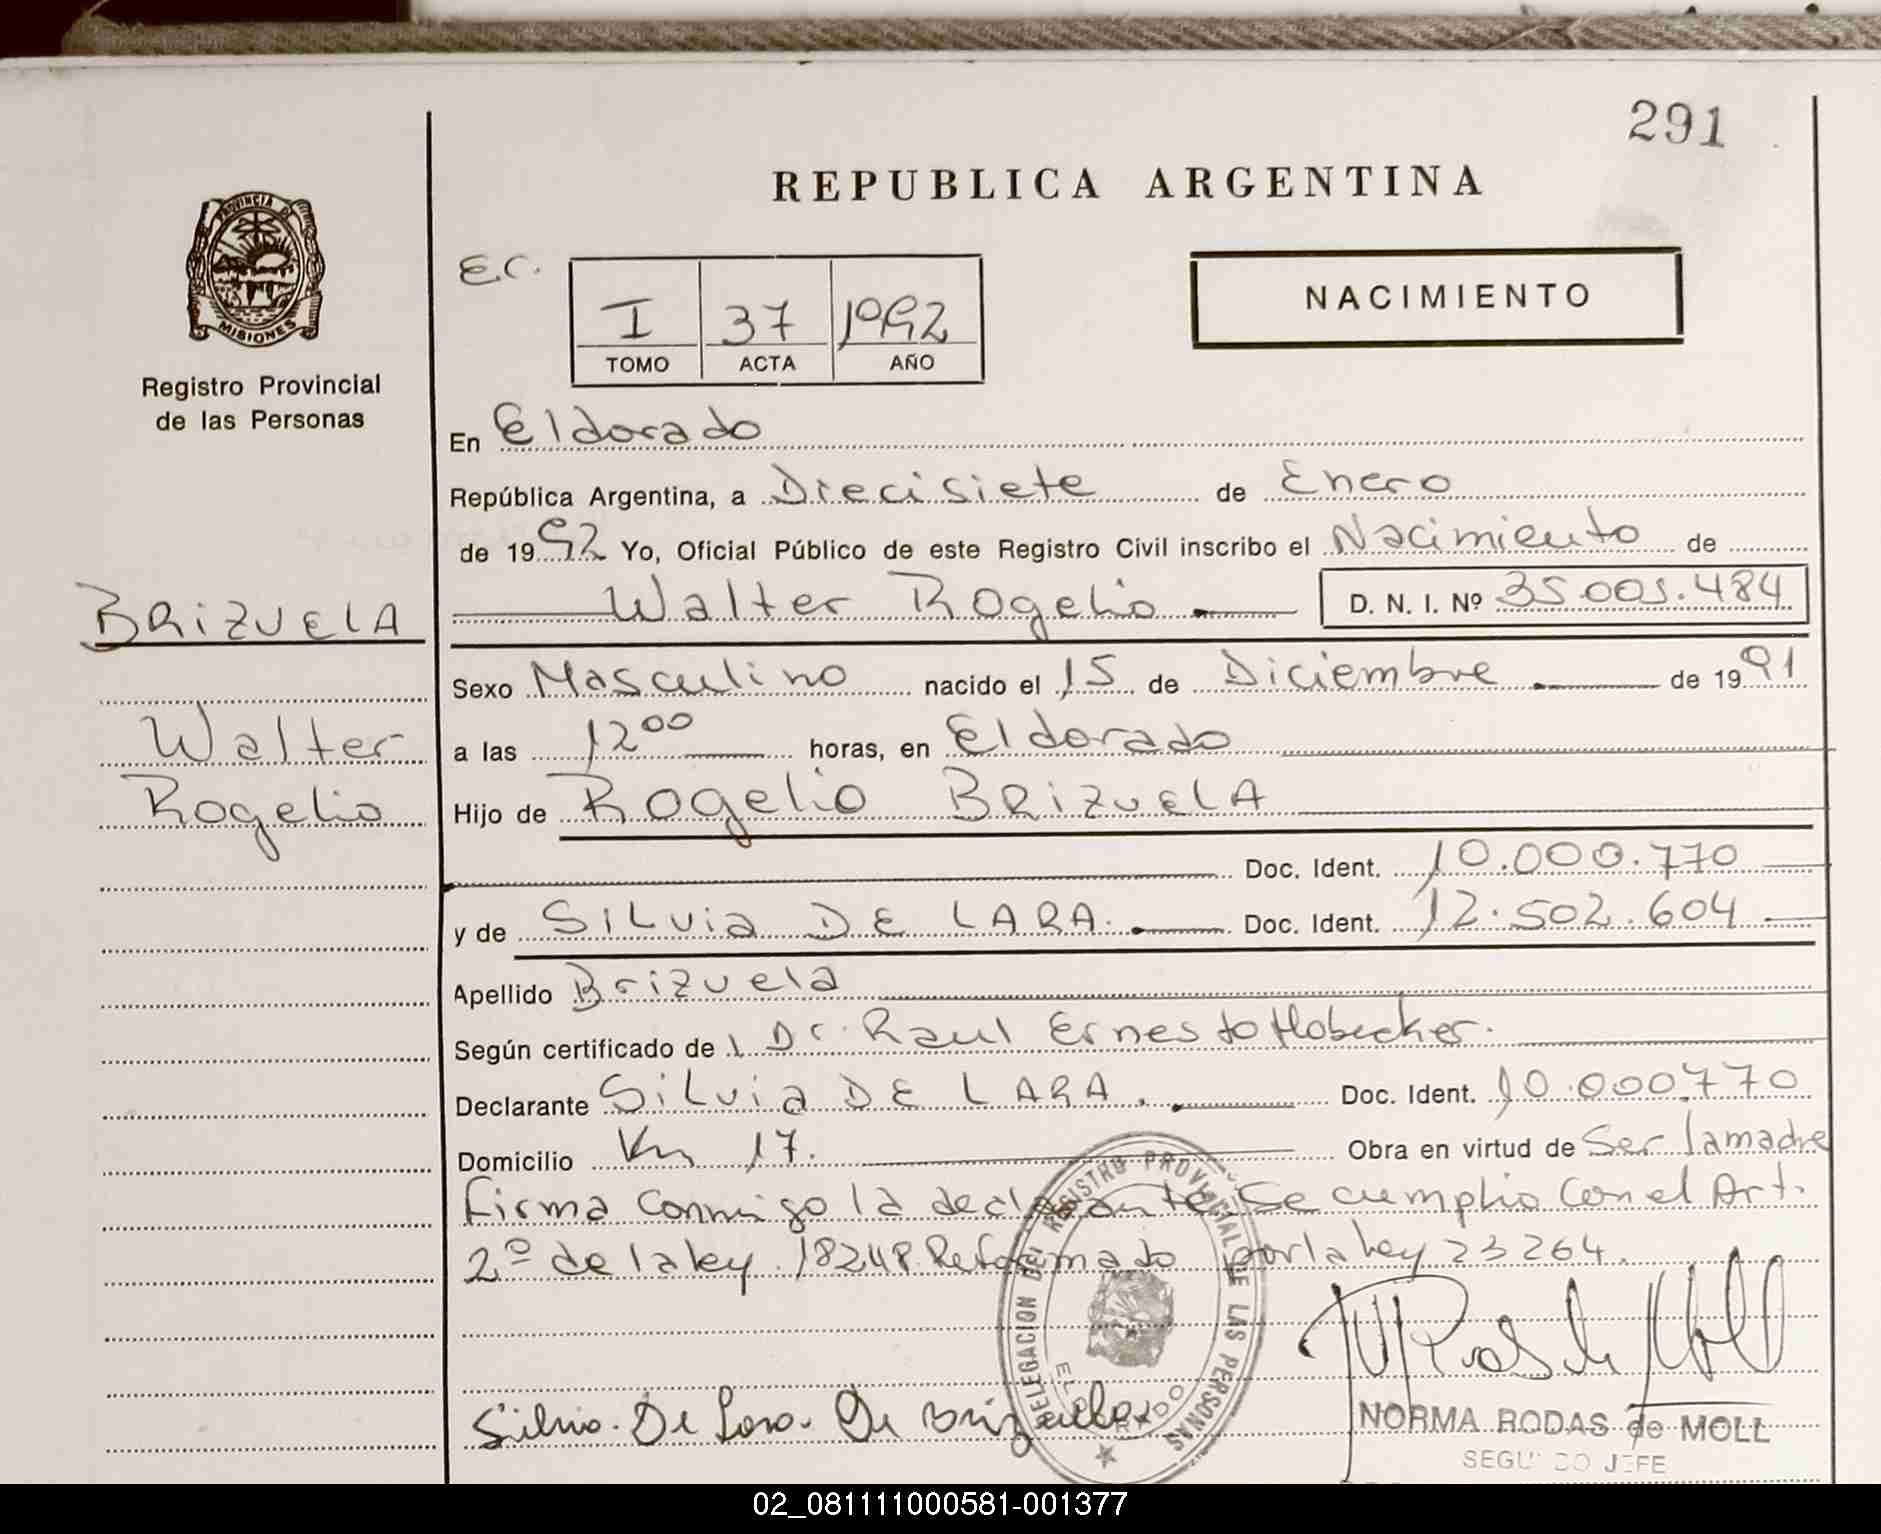 291
REPUBLICA ARGENTINA
PROVINCIA DE
MISIONES
Registro Provincial
de las Personas
E.C.
I 37 1992
TOMO ACTA AÑO
NACIMIENTO
En Eldorado
República Argentina, a Diecisiete de Enero
de 1992 Yo, Oficial Público de este Registro Civil inscribo el Nacimiento de
BRIZUELA
Walter Rogelio D. N. I. Nº 35.005.484
Sexo Masculino nacido el 15 de Diciembre de 1991
Walter
a las 12⁰⁰ horas, en Eldorado
Rogelio
Hijo de Rogelio BRIZUELA
Doc. Ident. 10.000.770
y de SILVIA DE LARA. Doc. Ident. 12.502.604
Apellido Brizuela
Según certificado de Dr. Raul Ernesto Hobecker.
Declarante SILVIA DE LARA. Doc. Ident. 10.000.770
Domicilio Km 17. Obra en virtud de Ser la madre
firma conmigo la declarante Se cumplio Con el Art.
2º de la ley 18248 Reformado por la ley 23264.
DELEGACION DEL REGISTRO PROVINCIAL DE LAS PERSONAS
ELDORADO
Silvia De Lara De Brizuela
NORMA RODAS de MOLL
SEGUNDO JEFE
02_081111000581-001377